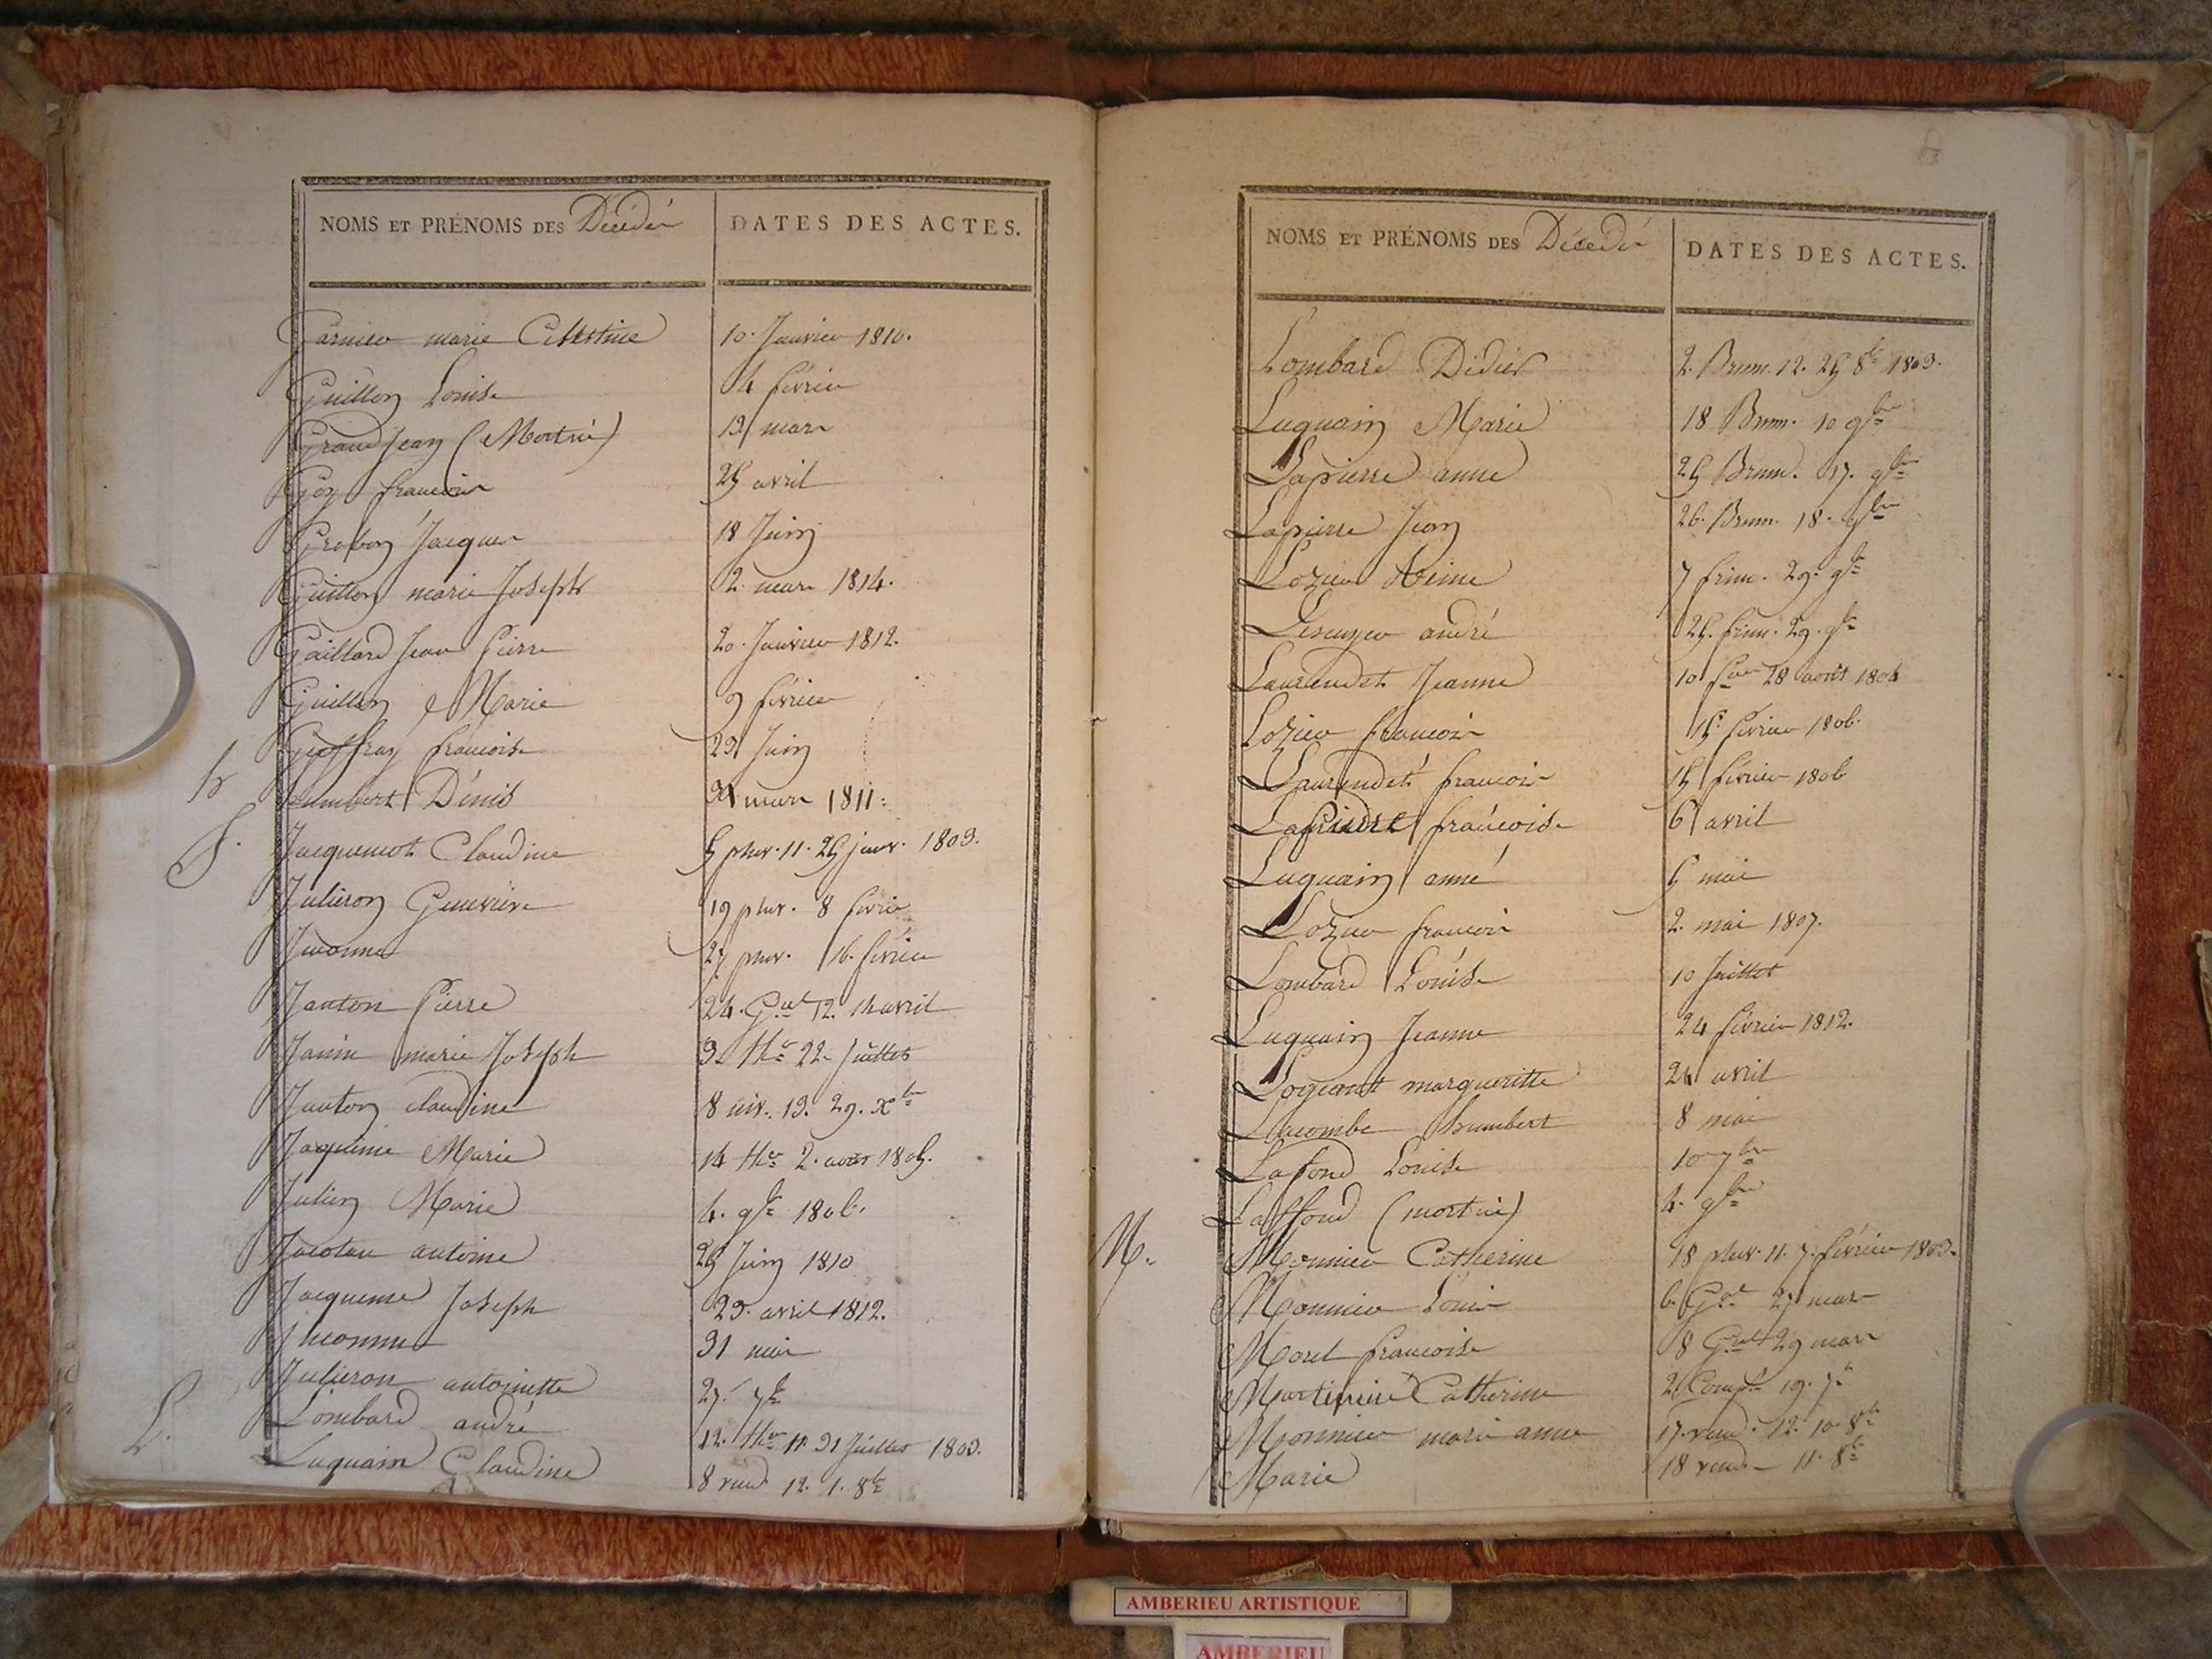 NOMS ET PRÉNOMS DES Décédés DATES DES ACTES.
Garnier marie Celestine 10. Janvier 1810.
Guillon Louise 4 février
Grandjean (Mortné) 13 mars
Goy francois 25 avril
Grobon Jacques 18 Juin
Guillon marie Joseph 2. mars 1814.
Gaillard Jean Pierre 20. Janvier 1812.
Guillon Marie 9 février
Geoffray francoise 23 Juin
h
humbert Dénis mars 1811.
J.
Jacquemot Claudine 5 pluv. 11. 25 janv. 1803.
Julieron Genevieve 19 pluv. 8 février
Inconnu 27 pluv. 16. février
Janton Pierre 24. Gal 12. 14 avril
Janin marie Joseph 3. thr 22. Juillet
Janton claudine 8 niv. 13. 29. Xbre
Jaqueme Marie 14 thr 2. aout 1805.
Julien Marie 4. 9bre 1806.
antoine 25 Juin 1810
Jacqueme Joseph 23. avril 1812.
Inconnu 31 mai
Julieron antoinette 27. 7bre
L.
Lombard andré 12. thr 11. 31 Juillet 1803.
Luquain Claudine 8 vend 12. 1. 8bre
NOMS ET PRÉNOMS DES Décédés DATES DES ACTES.
Lombard Didier 2. Brum. 12. 25 8bre 1803.
Luquain Marie 18 Brum. 10 9bre
Lapierre anne 25 Brum. 17. 9bre
Lapierre Jean 26. Brum. 18. 9bre
Lozier 7 frim. 29. 9bre
Lescuyer andré 25. frim. 29. 9bre
Laurendet Jeanne 10 for 28 août 1804
Lozier francois 15 février 1806.
Laurendet francois 15 février 1806
Lapierre francoise 6 avril
Luquain anne 5 mai
Lozier francois 2. mai 1807.
Lombard Louise 10 Juillet
Luquain Jeanne 24 février 1812.
margueritte 24 avril
Lacombe humbert 8 mai
Lafond Louise 10 7bre
Laffond (mortné) 4. 9bre
M.
Monnier Catherine 18 pluv. 11. 7. février 1803.
Monnier Louis 6. Gal 27 mars
Morel francoise 8 Gal 29 mars
Catherine 2 Compre 19. 7bre
Monnier marie anne 17. vend. 12. 10. 8bre
Marie 18 vend. 11. 8bre
AMBERIEU ARTISTIQUE
AMBERIEU